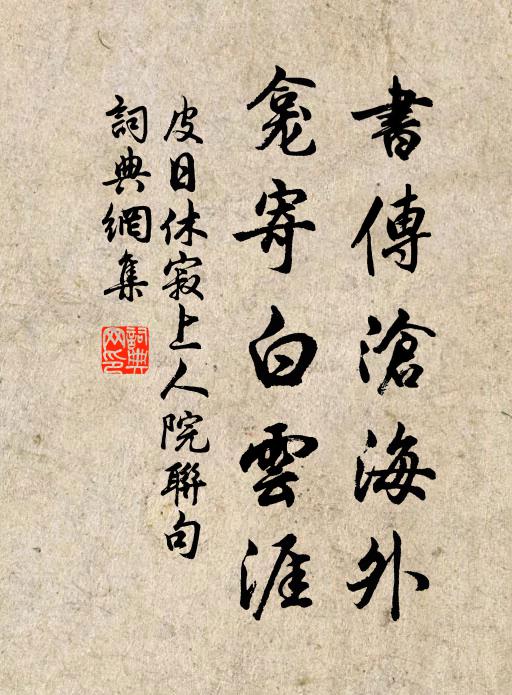 書傳滄海外
龛寄白雲涯
皮日休寂上人院聯句
詞典網集
詞典网印